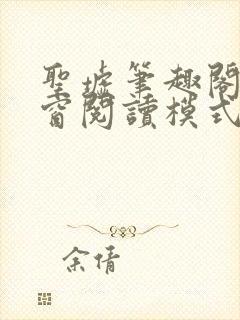 聖墟筆趣閣
窗閱讀模式
余倩